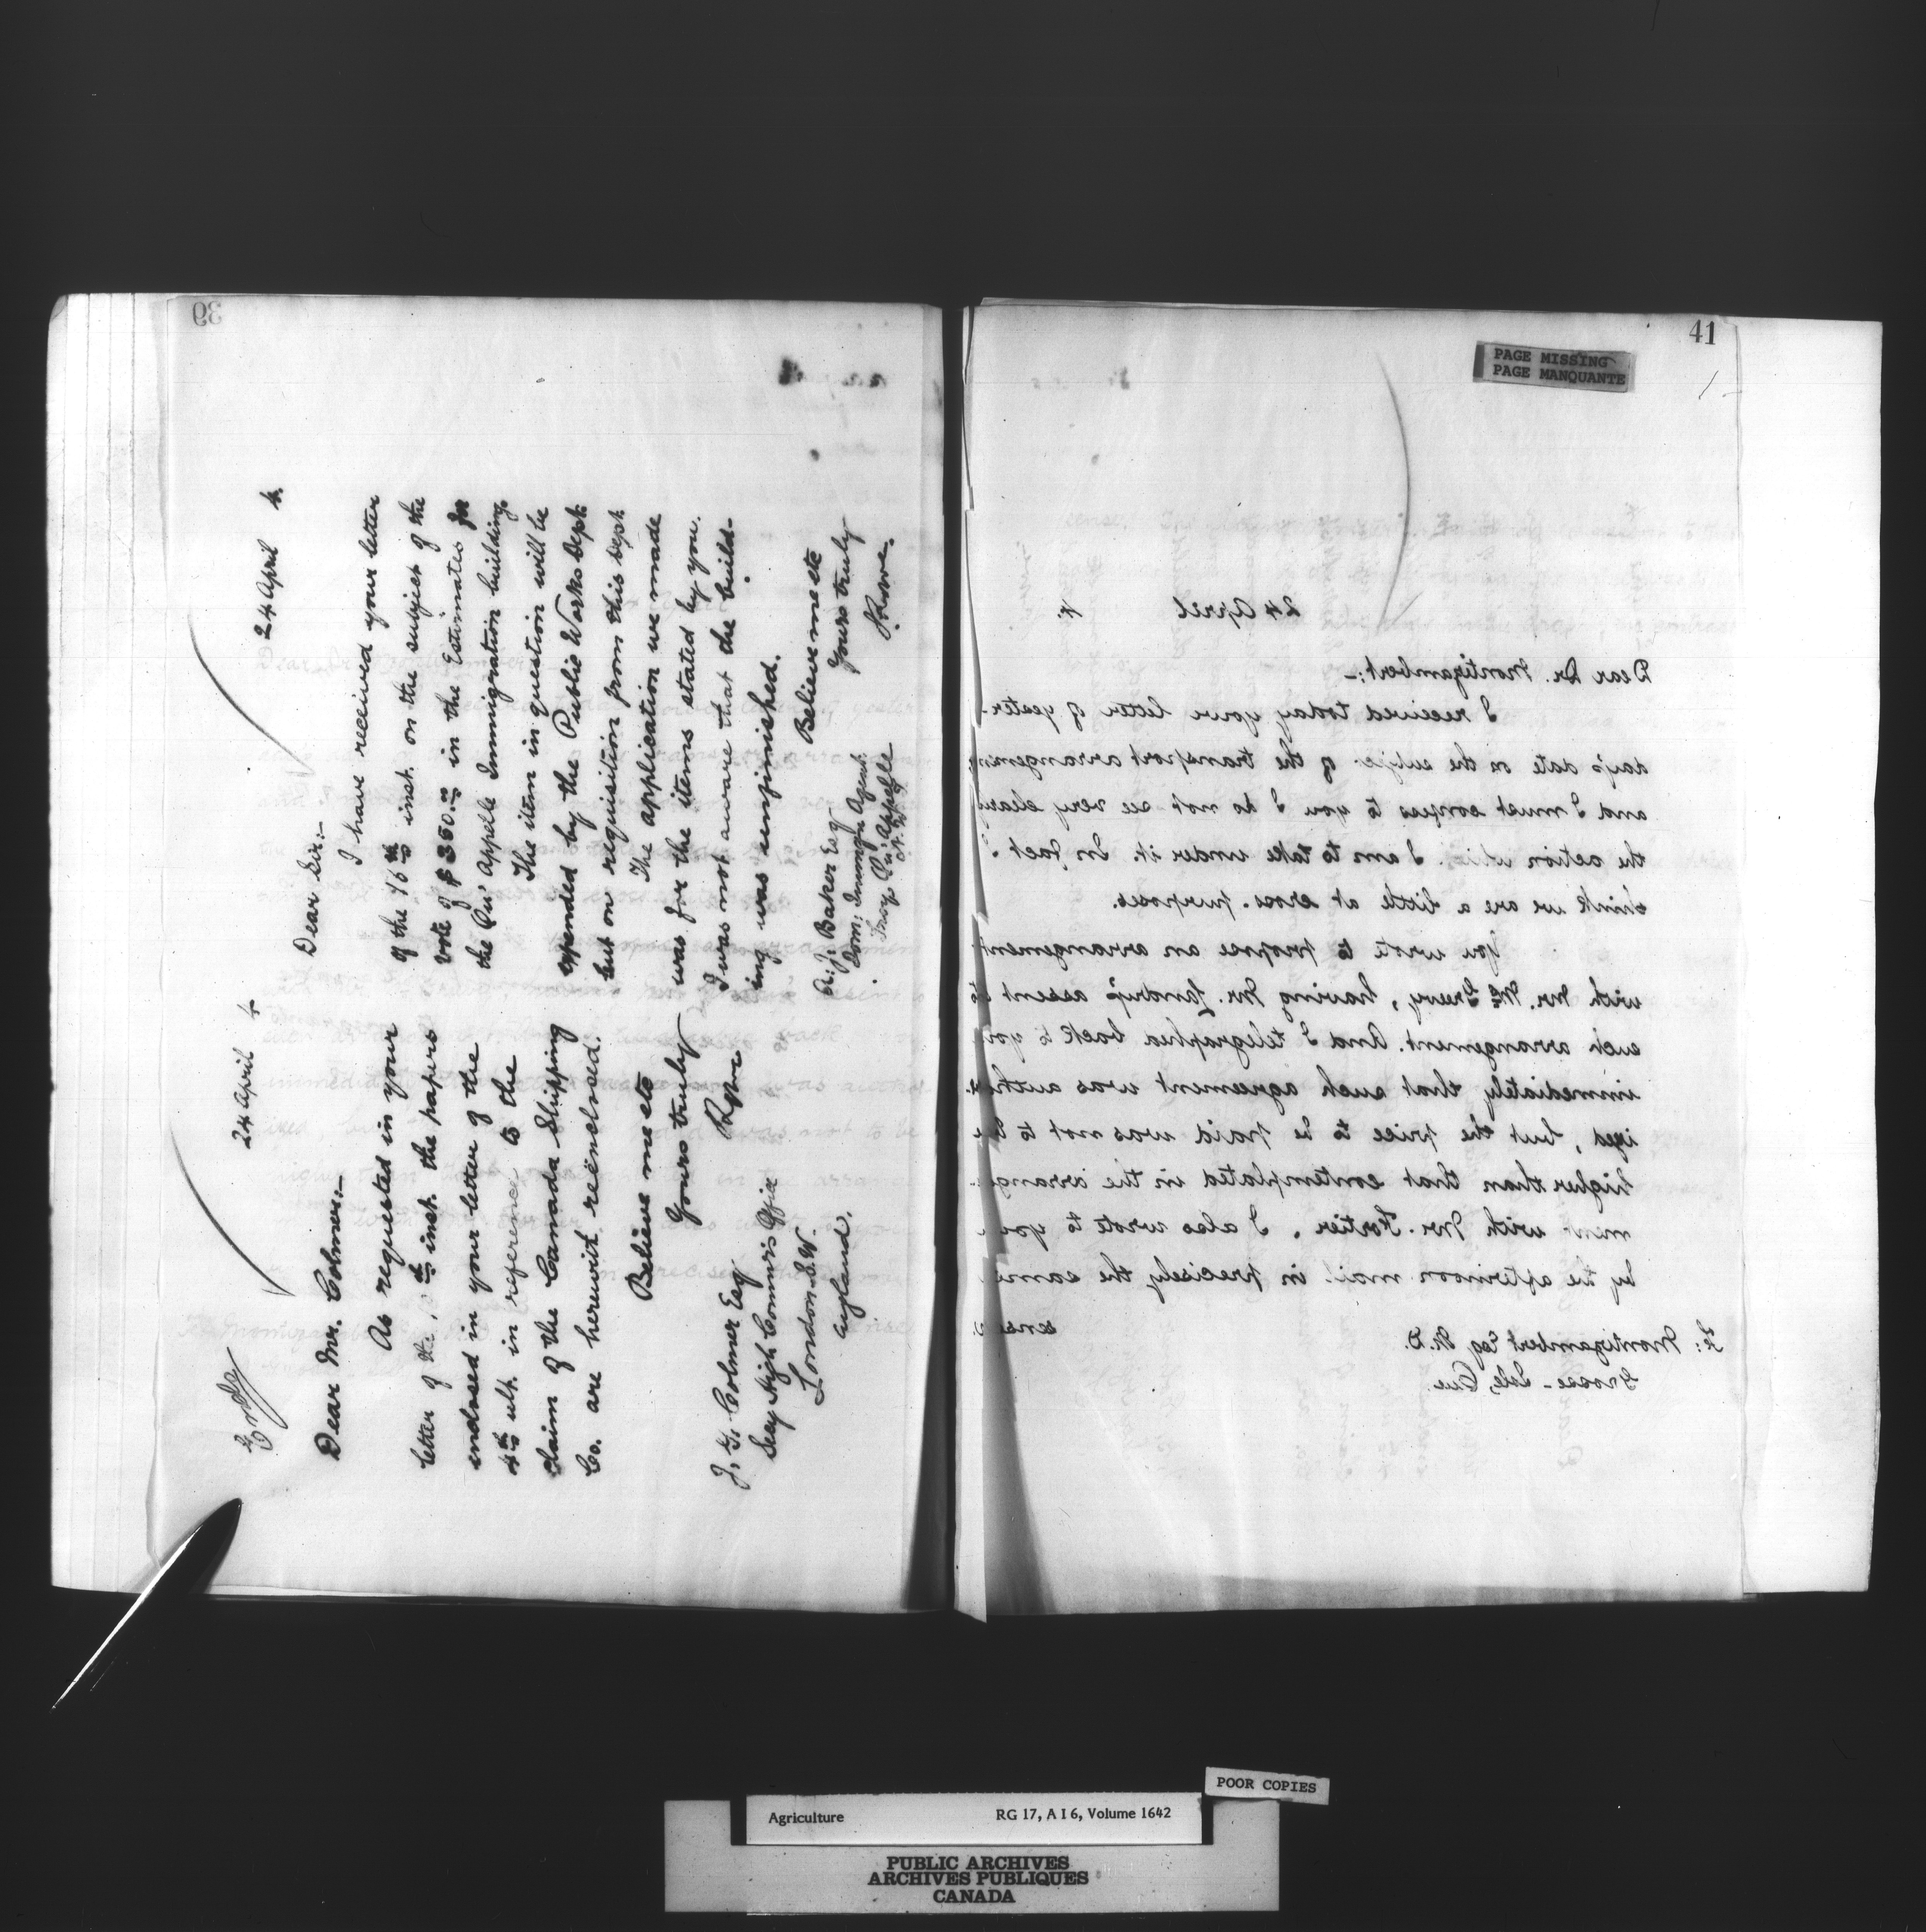 39
24 April 4.
Dear Mr. Colmer:-
As requested in your
letter of the inst. the papers
enclosed in your letter of the
4th ult. in reference to the
claim of the Canada Shipping
Co. are herewith reënclosed.
Believe me etc
Yours truly
J. G. Colmer Esq
Secy High Commr's Office
London S.W.
England.
24 April 4.
Dear Sir:-
I have received your letter
of the 16th inst. on the subject of the
vote of $350.00 in the Estimates for
the Qu'Appelle Immigration building.
The item in question will be
expended by the Public Works Dept.
but on requisition from this Dept.
The application we made
was for the items stated by you.
I was not aware that the build-
ing was unfinished.
Believe me etc
Yours truly
J Lowe.
A. J. Baker Esq
Dom: Immign Agent.
Troy Qu'Appelle
N.W.T.
41
PAGE MISSING
PAGE MANQUANTE
24 April 4.
Dear Dr. Montizambert:-
I received today your letter of yester-
day's date on the subject of the transport arrangement
and I must confess to you I do not see very clearly
the action which I am to take under it. In fact I
think we are a little at cross-purposes.
You wrote to propose an arrangement
with Mr. McGreevy, having Mr. Landry's assent to
such arrangement. And I telegraphed back to you
immediately that such agreement was author-
ized, but the price to be paid was not to be
higher than that contemplated in the arrange-
ment with Mr. Fortier. I also wrote to you
by the afternoon mail in precisely the same
sense
F: Montizambert Esq M.D.
Grosse-Isle, Que
POOR COPIES
Agriculture RG 17, A I 6, Volume 1642
PUBLIC ARCHIVES
ARCHIVES PUBLIQUES
CANADA